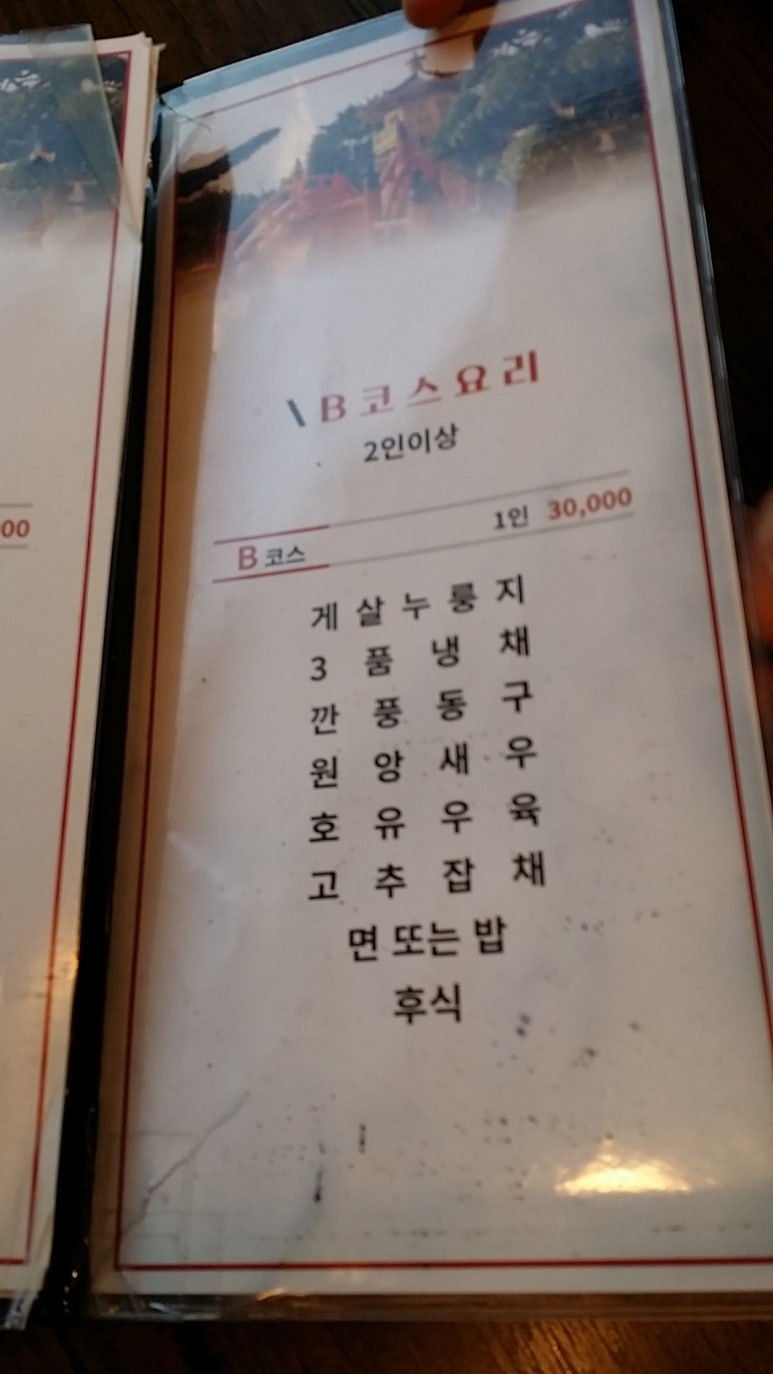 \B코스요리
2인이상
B 코스 1인 30,000
게살누룽지
3품냉채
깐풍동구
원앙새우
호유우육
고추잡채
면 또는 밥
후식
00